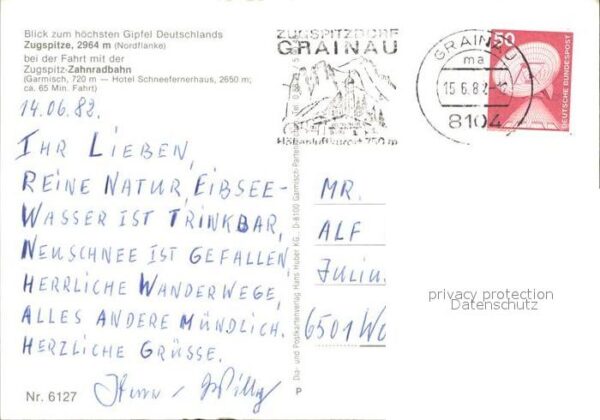 Blick zum höchsten Gipfel Deutschlands
Zugspitze, 2964 m (Nordflanke)
bei der Fahrt mit der
Zugspitz-Zahnradbahn
(Garmisch, 720 m — Hotel Schneefernerhaus, 2650 m;
ca. 65 Min. Fahrt)
14.06.82.
IHR LIEBEN,
REINE NATUR, EIBSEE-
WASSER IST TRINKBAR,
NEUSCHNEE IST GEFALLEN,
HERRLICHE WANDERWEGE,
ALLES ANDERE MÜNDLICH.
HERZLICHE GRÜSSE.
Willy
Nr. 6127
Dia- und Postkartenverlag Hans Huber KG., D-8100 Garmisch-Partenkirchen
P
ZUGSPITZDORF
GRAINAU
Höhenluftkurort 750 m
GRAINAU
ma
15.6.82
8104
50
DEUTSCHE BUNDESPOST
MR.
ALF
Juliu
6501 Wo
privacy protection
Datenschutz